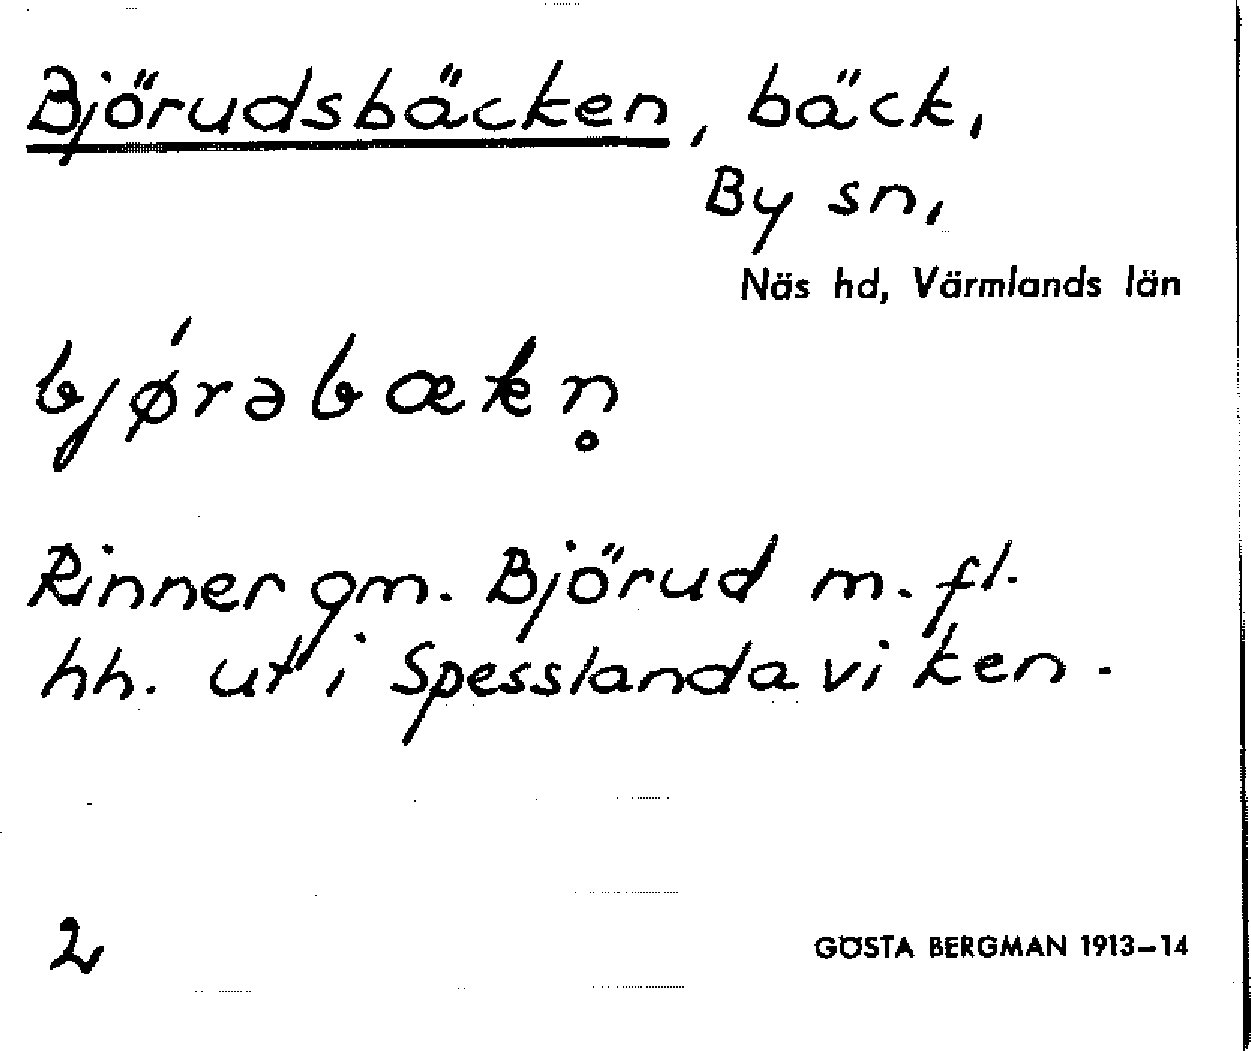 Björudsbäcken, bäck,
By sn,
Näs hd, Värmlands län
bjǿrəbækn̥
Rinner gm. Björud m. fl.
hh. ut i Spesslandaviken.
2
GÖSTA BERGMAN 1913–14